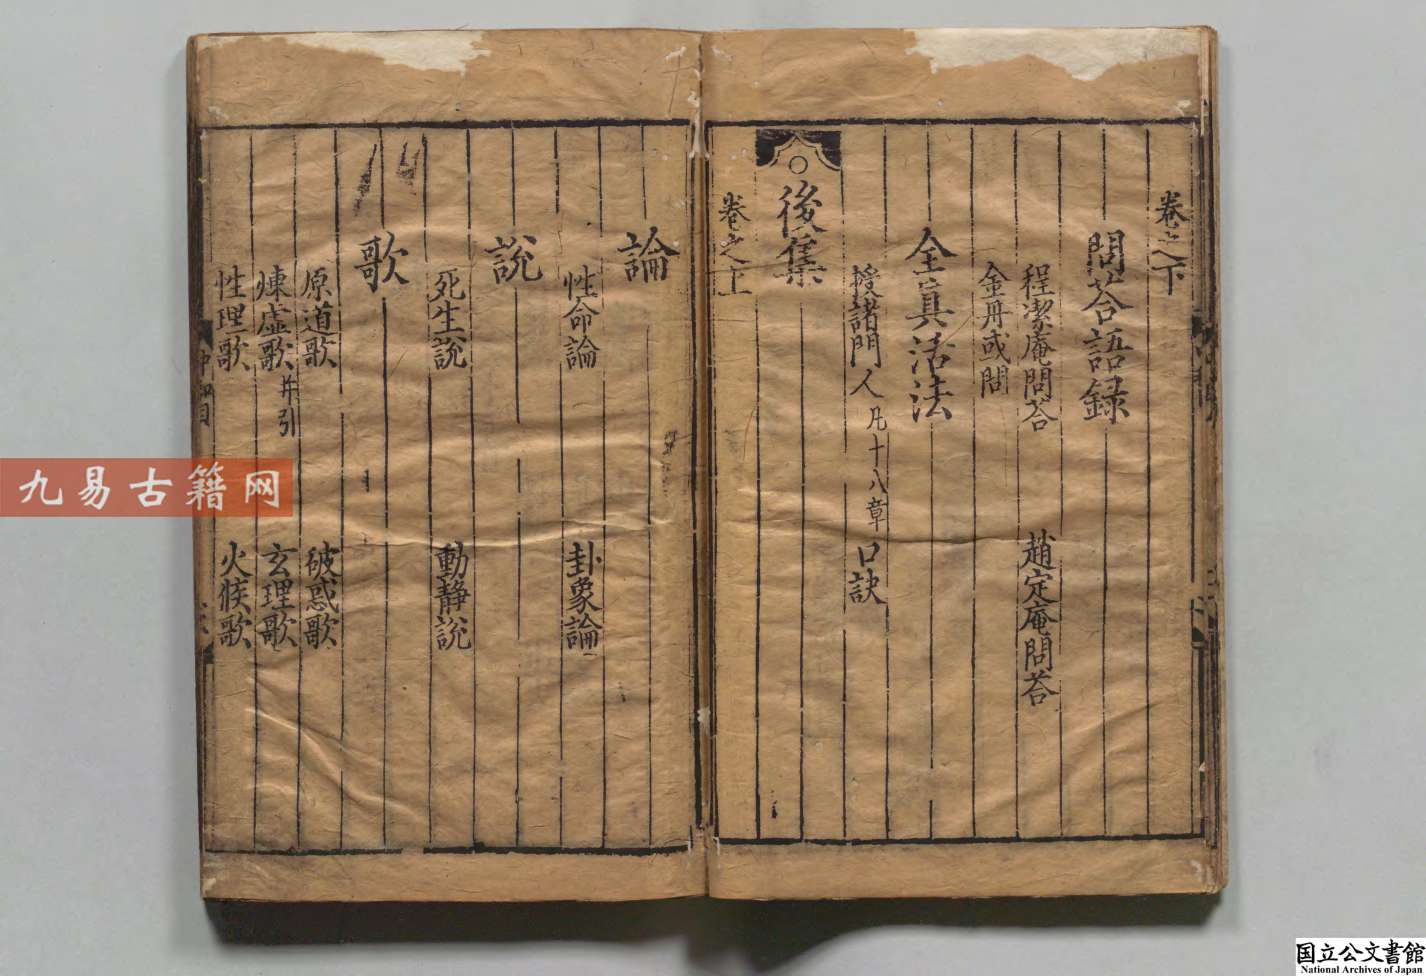 卷之下
問荅語録
程潔庵問荅　趙定庵問荅
金丹或問
全真活法
授諸門人 凡十八章　口訣
○後集
卷之上
論
性命論　卦象論
說
死生說　動静說
歌
原道歌　破惑歌
煉虚歌 并引　玄理歌
性理歌　火候歌
九易古籍网
国立公文書館
National Archives of Japan